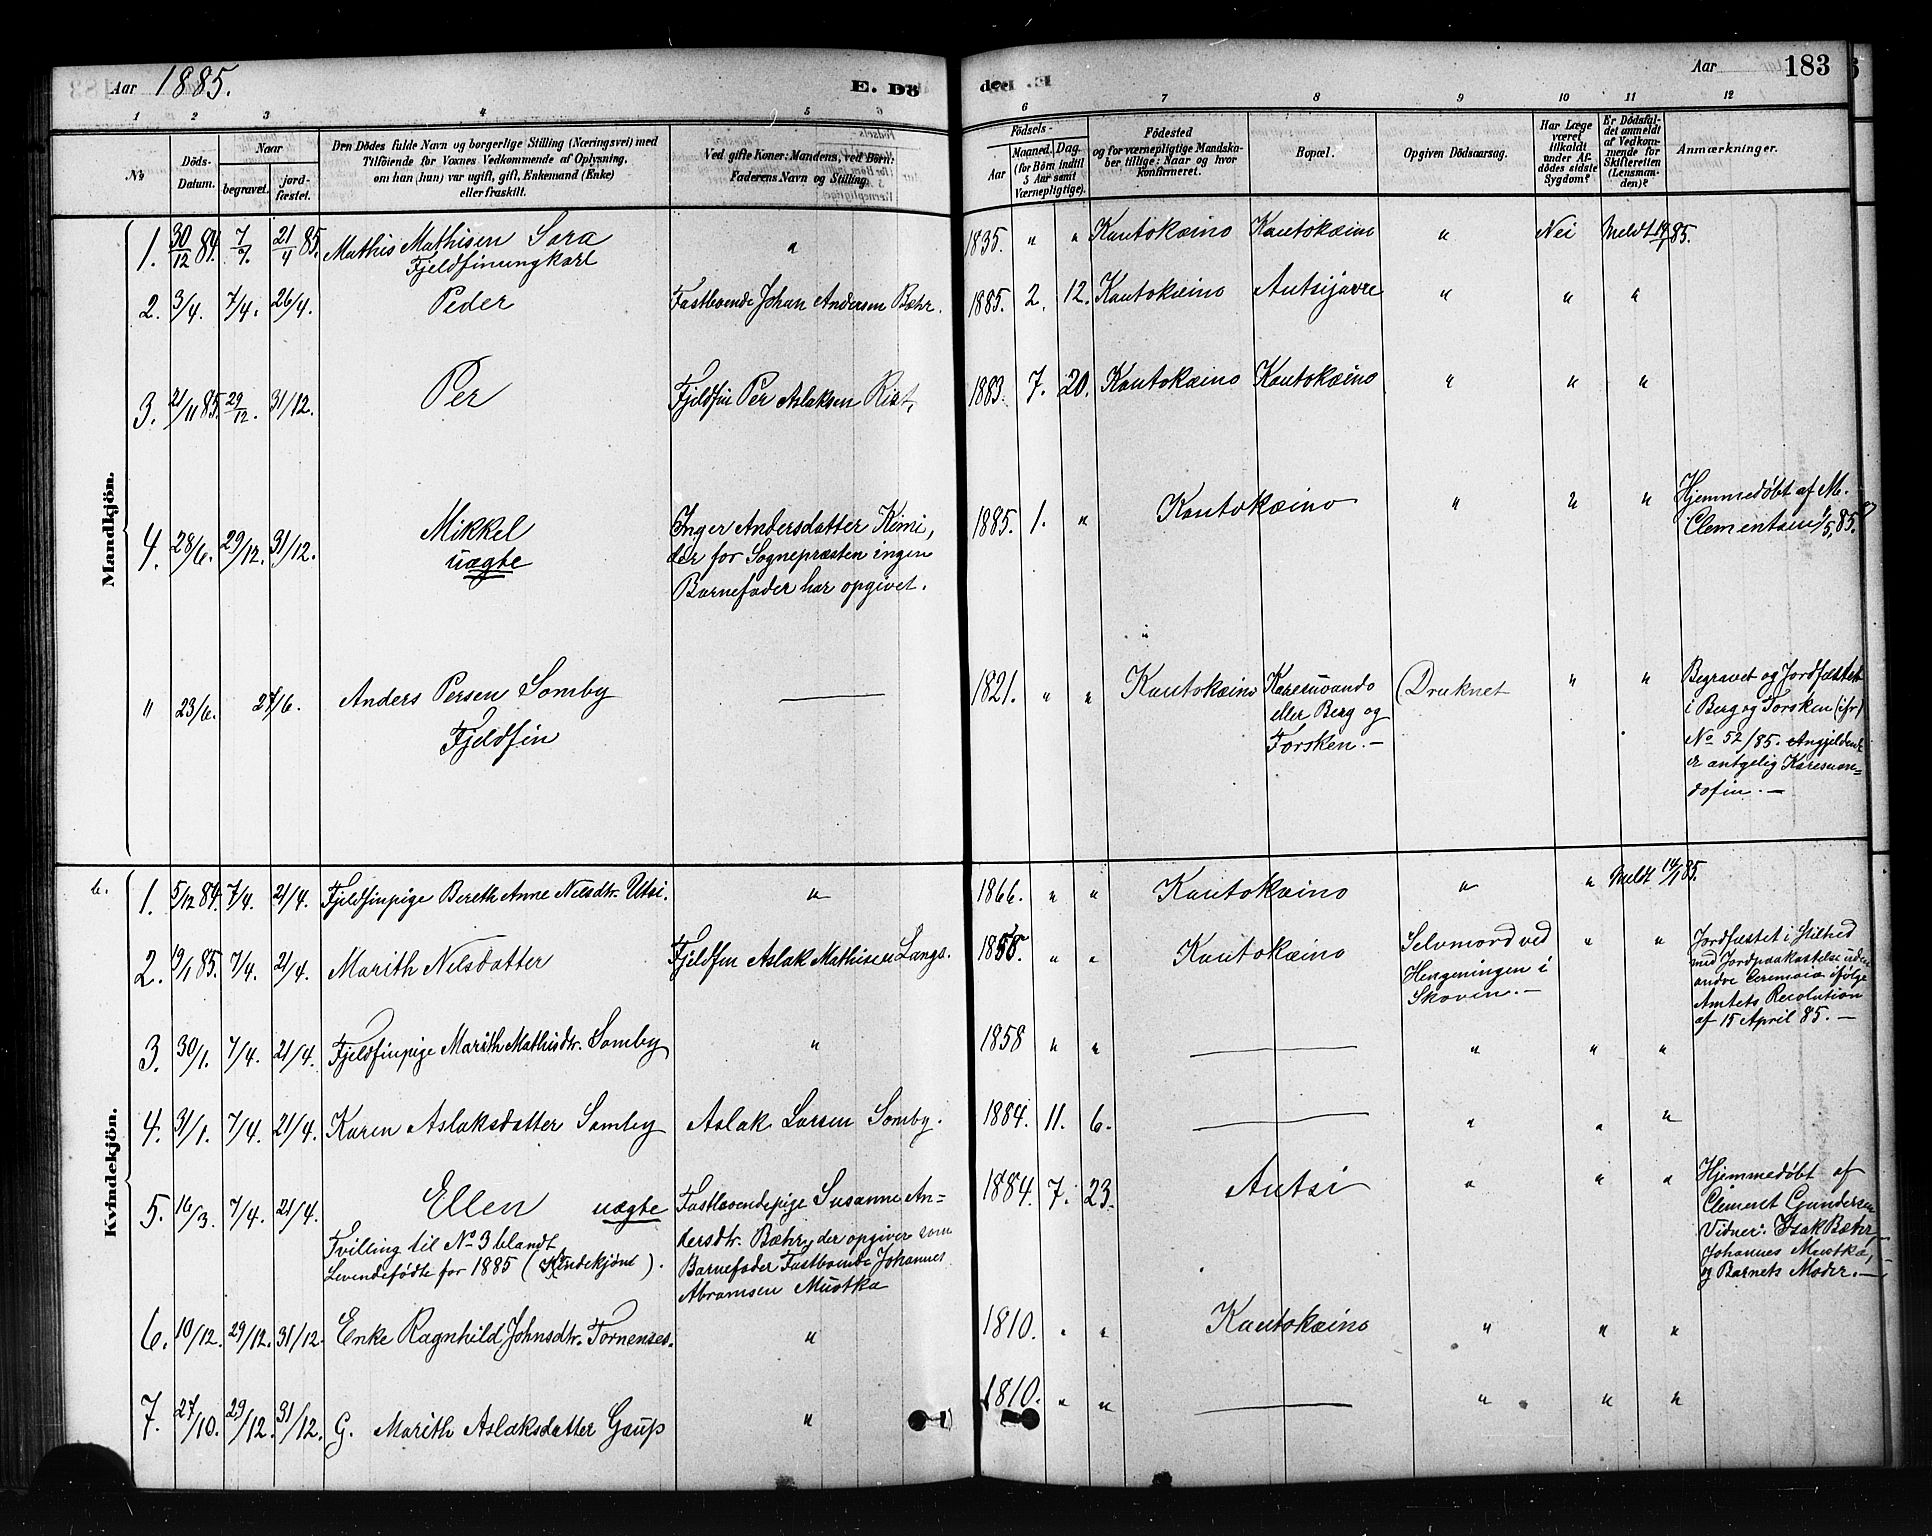 Aar 1885.
E. Dö
deel .E
Aar 183
1 2 3 4 5 6
6 7 8 9 10 11 12
No
Döds-Datum.
Naar
begravet.
jord-fæstet.
Den Dödes fulde Navn og borgerlige Stilling (Næringsvei) med
Tilföiende for Voxnes Vedkommende af Oplysning,
om han (hun) var ugift, gift, Enkemand (Enke)
eller fraskilt.
Ved gifte Koner: Mandens, ved Börn:
Faderens Navn og Stilling.
Födsels-
Aar
Maaned. Dag.
(for Börn indtil
5 Aar samt
Værnepligtige).
Födested
og for værnepligtige Mandska-
ber tillige: Naar og hvor
Konfirmeret.
Bopæl.
Opgiven Dödsaarsag.
Har Læge
været
tilkaldt
under Af-
dödes sidste
Sygdom?
Er Dödsfal-
det anmeldt
af Vedkom-
mende for
Skifteretten
(Lensman-
den)?
Anmærkninger.
Mandkjön.
1. 30/12 84. 7/7. 21/4 85. Mathis Mathisen Sara
Fjeldfinungkarl
" 1835. " " Kautokæino Kautokæino " Nei Meldt 14/1 85.
2. 3/4. 7/4. 26/4. Peder Fastboende Johan Andersen Bæhr. 1885. 2. 12. Kautokæino Autsijavre " " "
3. 2/11 85. 29/12. 31/12. Per Fjeldfin Per Aslaksen Rist, 1883. 7. 20. Kautokæino Kautokæino " " "
4. 28/6. 29/12. 31/12. Mikkel
uægte
Inger Andersdatter Kemi,
der for Sognepræsten ingen
Barnefader har opgivet.
1885. 1. " Kautokæino " " "
Hjemmedøbt af M.
Clementsen 1/5, 85.
" 23/6. 27/6. Anders Persen Somby
Fjeldfin
1821. " " Kautokæino Karesuando
eller Berg og
Torsken. —
Druknet " "
Begravet og Jordfæstet
i Berg og Torsken (ifr)
No 52/85. Angjeldende
er antgelig Karesuan=
dofin. —
Kvindekjön.
1. 5/12 84. 7/4. 21/4. Fjeldfinpige Bereth Anne Nilsdtr. Utsi. " 1866. " " Kautokæino " " Meldt 14/1 85.
2. 19/1 85. 7/4. 21/4. Marith Nilsdatter Fjeldfin Aslak Mathisen Langs. 1858. " " Kautokæino
Selvmord ved
Hengeningen i
Skoven. —
" "
Jordfæstet i Stilhed
med Jordpaakastelse uden
andre Ceremoia ifølge
Amtets Resolution
af 15 April 85. —
3. 30/1. 7/4. 21/4. Fjeldfinpige Marith Mathisdtr. Somby " 1858 " " — " " "
4. 31/1. 7/4. 21/4. Karen Aslaksdatter Somby Aslak Larsen Somby. 1884. 11. 6. — " " "
5. 16/3. 7/4. 21/4. Ellen uægte
Tvilling til No 3 blandt
Levendefødte for 1885 (Kvindekjønt).
Fastboendepige Susanne An=
dersdtr. Bæhr, der opgiver som
Barnefader Fastboende Johannes
Abramsen Mustka
1884. 7. 23. Autsi " " "
Hjemmedøbt af
Clemet Gundersen
Vidner: Isak Bæhr,
Johannes Mustka,
og Barnets Moder. —
6. 10/12. 29/12. 31/12. Enke Ragnhild Johnsdtr. Tornenses. " 1810. " " Kautokæino " " "
7. 27/10. 29/12. 31/12. G. Marith Aslaksdatter Gaup " 1810. " " — " " "